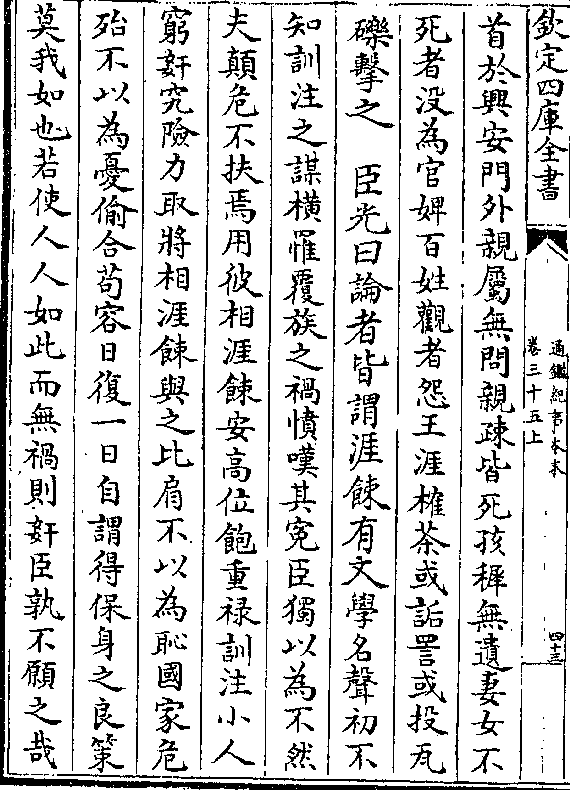 欽定四庫全書
通鑑紀事本末
卷三十五上
四十三
首於興安門外親屬無問親疎皆死孩穉無遺妻女不
死者没為官婢百姓觀者怨王涯榷茶或詬詈或投瓦
礫擊之　臣光曰論者皆謂涯餗有文學名聲初不
知訓注之謀橫罹覆族之禍憤嘆其冤臣獨以為不然
夫顛危不扶焉用彼相涯餗安高位飽重禄訓注小人
窮奸究險力取將相涯餗與之比肩不以為恥國家危
殆不以為憂偷合苟容日復一日自謂得保身之良策
莫我如也若使人人如此而無禍則奸臣孰不願之哉